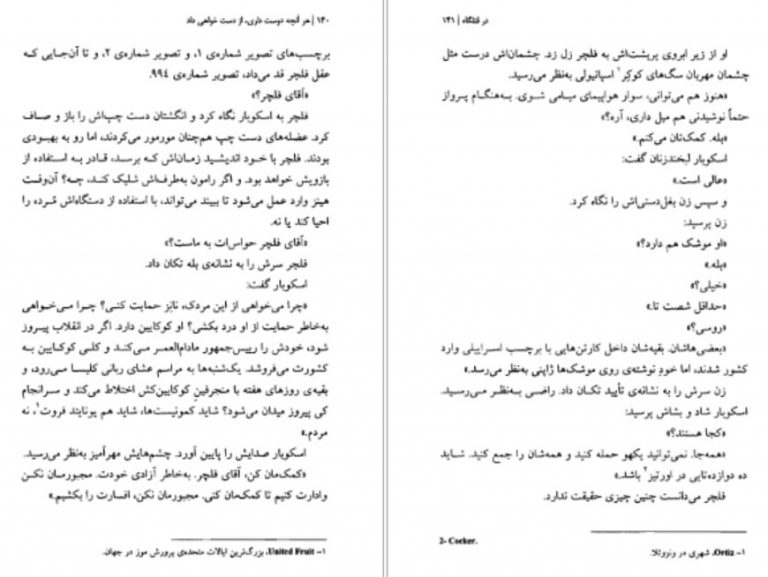 ۱۴۰ | هر آنچه دوست داری، از دست خواهی داد
برچسب‌های تصویر شماره‌ی ۱، و تصویر شماره‌ی ۲، و تا آن‌جایی که
عقل فلچر قد می‌داد، تصویر شماره‌ی ۹۹۴.
«آقای فلچر؟»
فلچر به اسکوبار نگاه کرد و انگشتان دست چپ‌اش را باز و صاف
کرد. عضله‌های دست چپ هم‌چنان مورمور می‌کردند، اما رو به بهبودی
بودند. فلچر با خود اندیشید زمان‌اش که برسد، قادر به استفاده از
بازویش خواهد بود. و اگر رامون به‌طرف‌اش شلیک کند، چه؟ آن‌وقت
هینز وارد عمل می‌شود تا ببیند می‌تواند، با استفاده از دستگاه‌اش مُرده را
احیا کند یا نه.
«آقای فلچر حواس‌ات به ماست؟»
فلچر سرش را به نشانه‌ی بله تکان داد.
اسکوبار گفت:
«چرا می‌خواهی از این مردک، نانِز حمایت کنی؟ چرا می‌خواهی
به‌خاطر حمایت از او درد بکشی؟ او کوکایین دارد. اگر در انقلاب پیروز
شود، خودش را رییس‌جمهور مادام‌العمر می‌کند و کلی کوکایین به
کشورت می‌فروشد. یک‌شنبه‌ها به مراسم عشای ربانی کلیسا می‌رود، و
بقیه‌ی روزهای هفته با منحرفین کوکایین‌کش اختلاط می‌کند و سرانجام
کی پیروز میدان می‌شود؟ شاید کمونیست‌ها، شاید هم یونایتد فروت¹، نه
مردم.»
اسکوبار صدایش را پایین آورد. چشم‌هایش مهرآمیز به‌نظر می‌رسید.
«کمک‌مان کن، آقای فلچر. به‌خاطر آزادی خودت. مجبورمان نکن
وادارت کنیم تا کمک‌مان کنی. مجبورمان نکن، افسارت را بکشیم.»
۱- United Fruit، بزرگ‌ترین ایالات متحده‌ی پرورش موز در جهان.
در قتلگاه | ۱۴۱
او از زیر ابروی پرپشت‌اش به فلچر زل زد. چشمان‌اش درست مثل
چشمان مهربان سگ‌های کوکِر¹ اسپانیولی به‌نظر می‌رسید.
«هنوز هم می‌توانی، سوار هواپیمای میامی شوی. به‌هنگام پرواز
حتماً نوشیدنی هم میل داری، آره؟»
«بله. کمک‌تان می‌کنم.»
اسکوبار لبخندزنان گفت:
«عالی است.»
و سپس زن بغل‌دستی‌اش را نگاه کرد.
زن پرسید:
«او موشک هم دارد؟»
«بله.»
«خیلی؟»
«حداقل شصت تا.»
«روسی؟»
«بعضی‌هاشان. بقیه‌شان داخل کارتن‌هایی با برچسب اسراییلی وارد
کشور شدند، اما خودِ نوشته‌ی روی موشک‌ها ژاپنی به‌نظر می‌رسد.»
زن سرش را به نشانه‌ی تأیید تکان داد. راضی به‌نظر می‌رسید.
اسکوبار شاد و بشاش پرسید:
«کجا هستند؟»
«همه‌جا. نمی‌توانید یکهو حمله کنید و همه‌شان را جمع کنید. شاید
ده دوازده‌تایی در اورتیز² باشد.»
فلچر می‌دانست چنین چیزی حقیقت ندارد.
2- Cocker.
۱- Ortiz، شهری در ونزوئلا.